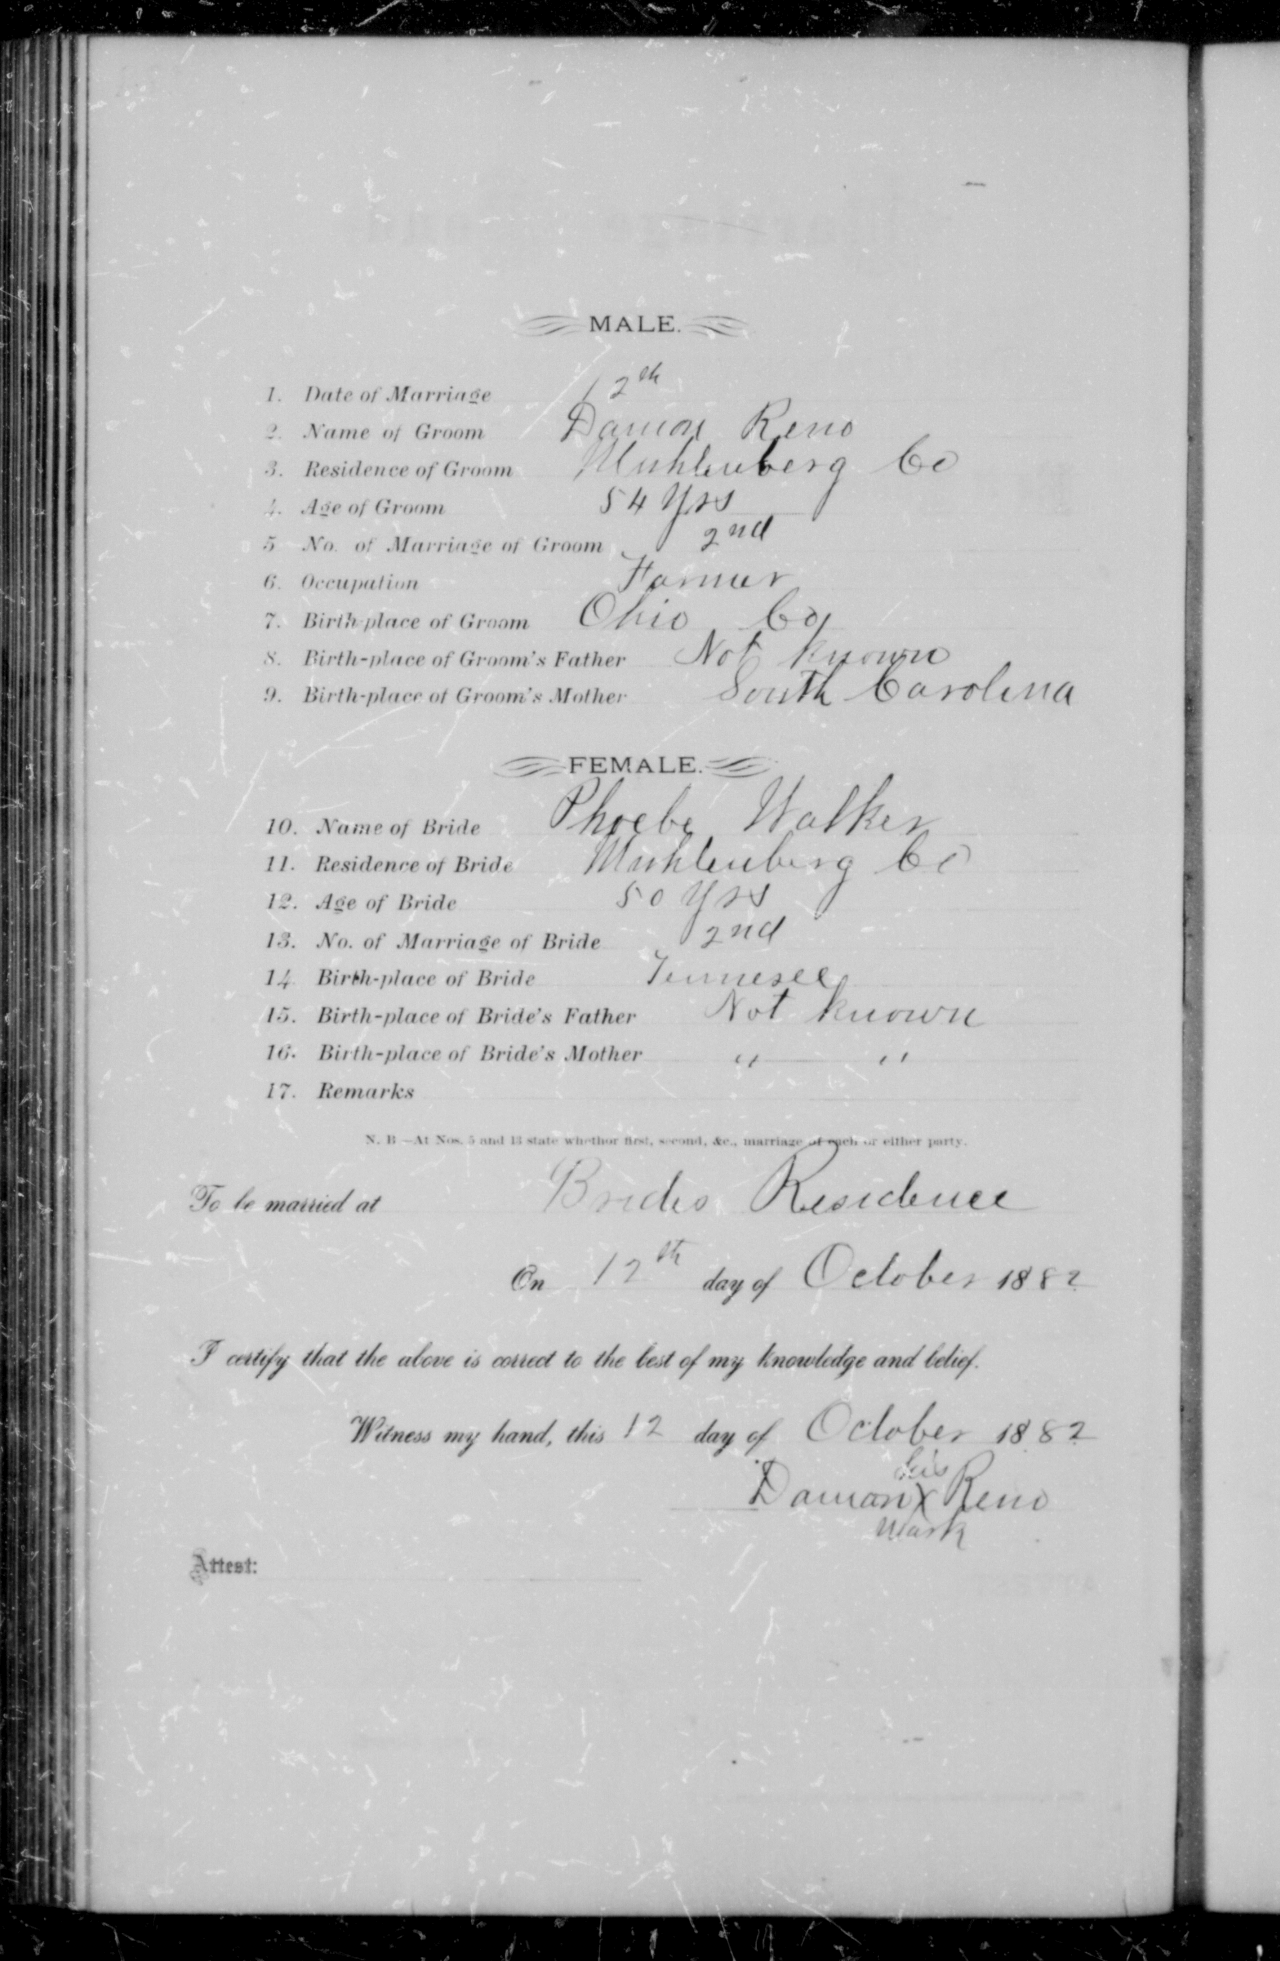 MALE.
1. Date of Marriage 12th
2. Name of Groom Damon Reno
3. Residence of Groom Muhlenberg Co
4. Age of Groom 54 Yrs
5 No. of Marriage of Groom 2nd
6. Occupation Farmer
7. Birth-place of Groom Ohio Co
8. Birth-place of Groom's Father Not Known
9. Birth-place of Groom's Mother South Carolina
FEMALE.
10. Name of Bride Phoebe Walker
11. Residence of Bride Muhlenberg Co
12. Age of Bride 50 Yrs
13. No. of Marriage of Bride 2nd
14 Birth-place of Bride Tennesee
15. Birth-place of Bride's Father Not Known
16. Birth-place of Bride's Mother " "
17. Remarks
N. B—At Nos. 5 and 13 state whether first, second, &c., marriage of each or either party.
To be married at Brides Residence
On 12th day of October 1882
I certify that the above is correct to the best of my knowledge and belief.
Witness my hand, this 12 day of October 1882
his
Damon X Reno
mark
Attest: